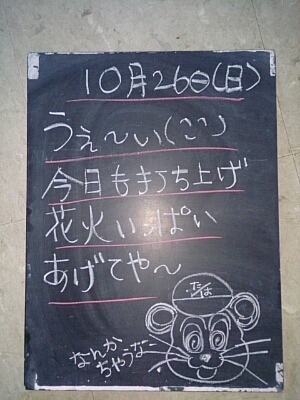 10月26日(日)
うぇ～い(ここ)
今日もまうち上げ
花火いっぱい
あげてや～
なんか
ちゃうな～